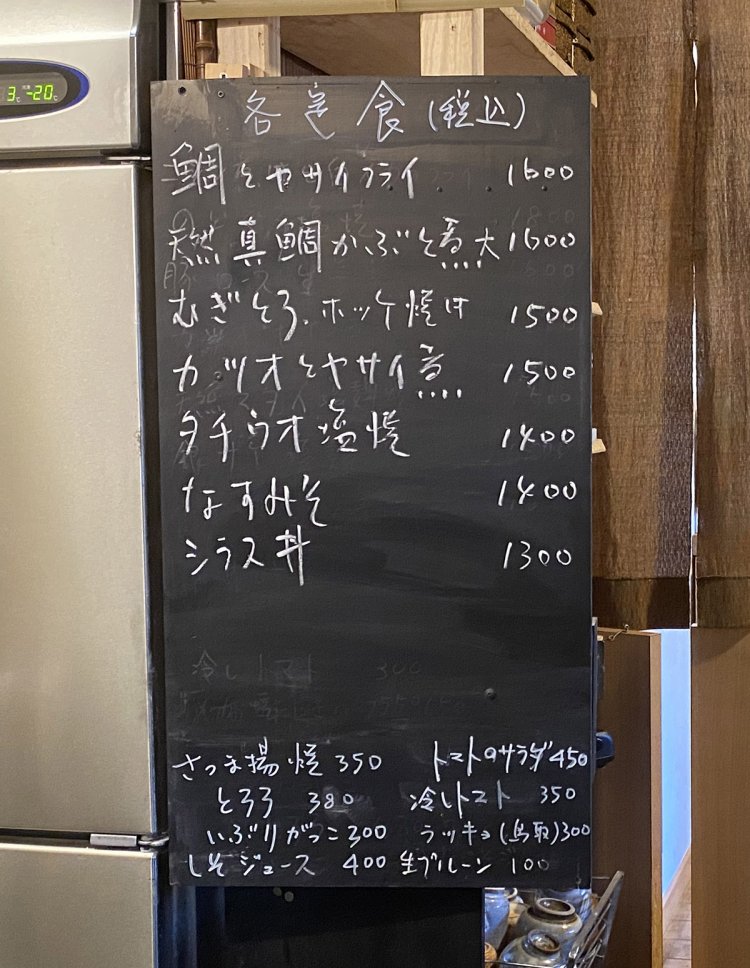 3℃ -20℃
各定食(税込)
鯛とヤサイフライ 1600
天然真鯛かぶと煮大 1600
むぎとろ、ホッケ焼け 1500
カツオとヤサイ煮 1500
タチウオ塩焼 1400
なすみそ 1400
シラス丼 1300
冷しトマト 300
さつま揚焼 350 トマトのサラダ 450
とろろ 380 冷しトマト 350
いぶりがっこ 300 ラッキョ(鳥取) 300
しそジュース 400 生プルーン 100